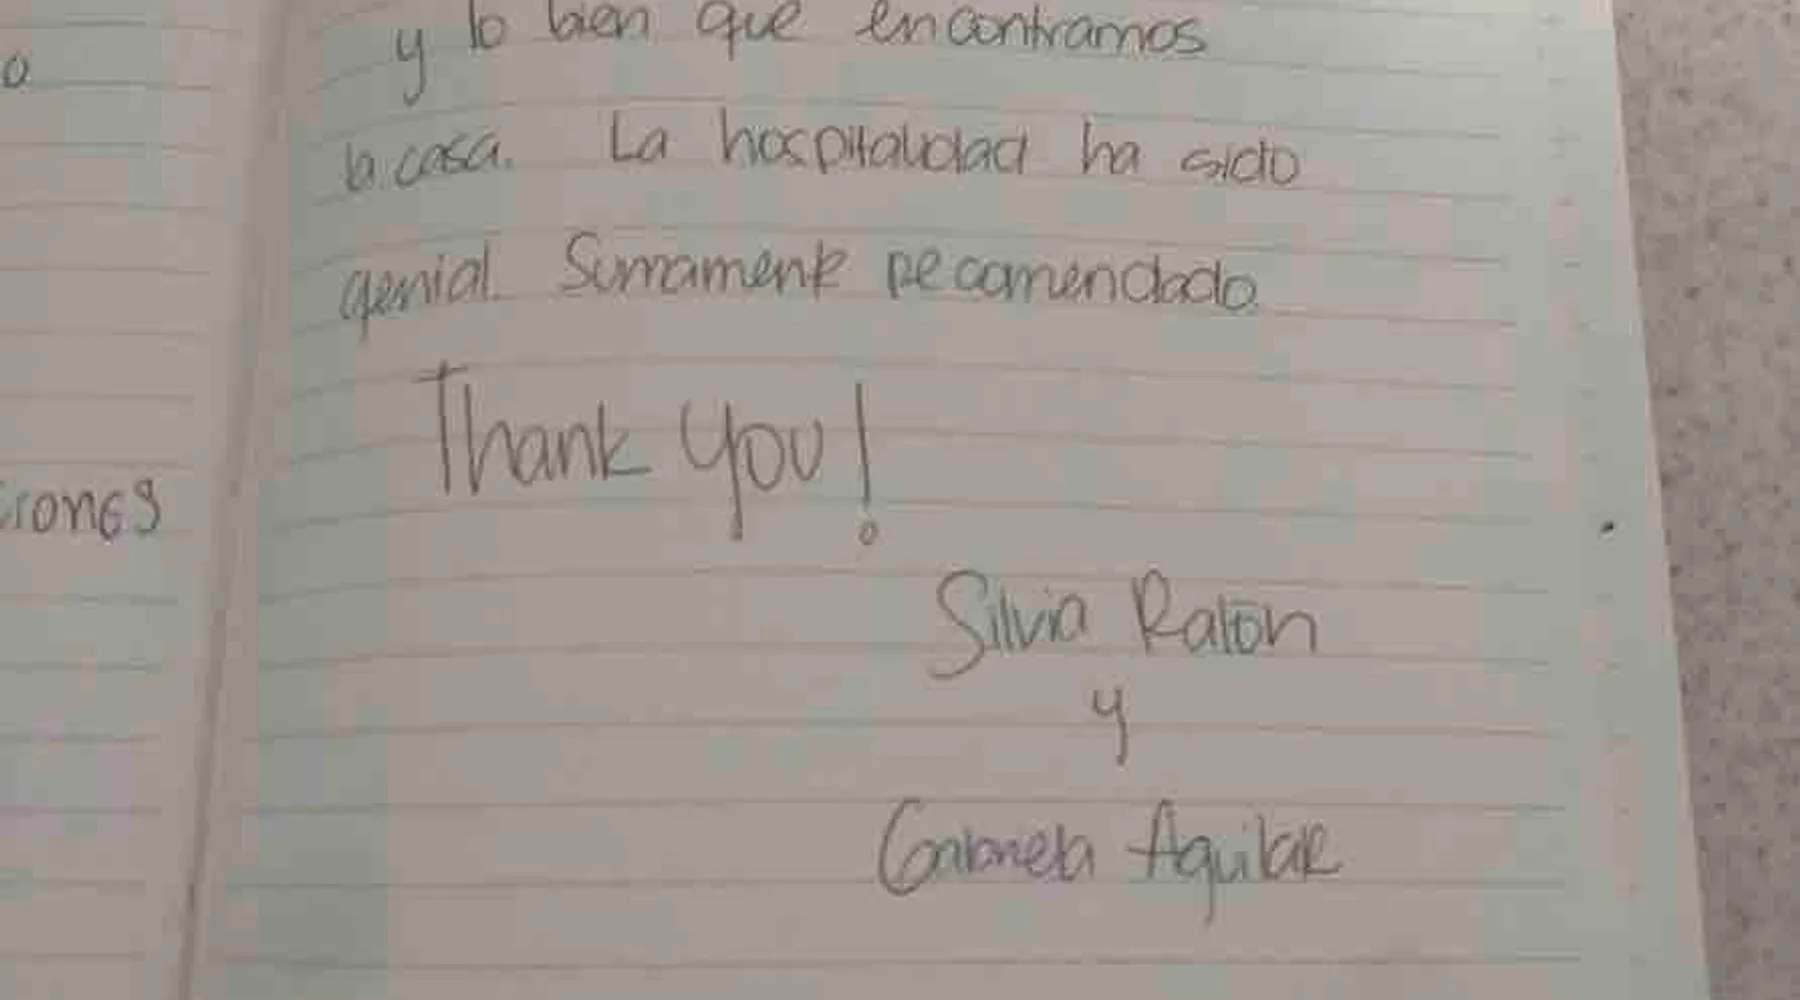 o
ciones
y lo bien que encontramos
la casa. La hospitalidad ha sido
genial. Sumamente recomendado.
Thank you!
Silvia Ratón
y
Gabriela Aguilar